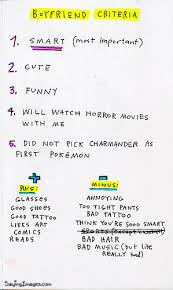 BOYFRIEND CRITERIA
1. SMART (most important)
2. CUTE
3. FUNNY
4. WILL WATCH HORROR MOVIES
WITH ME
5. DID NOT PICK CHARMANDER AS
FIRST POKÉMON
+
PLUS:
GLASSES
GOOD SHOES
GOOD TATTOO
LIKES ART
COMICS
READS
-
MINUS:
ANNOYING
TOO TIGHT PANTS
BAD TATTOO
THINK YOU'RE SOOO SMART
SPORTS (except
BAD HAIR
BAD MUSIC (but like
REALLY bad)
SayingImages.com